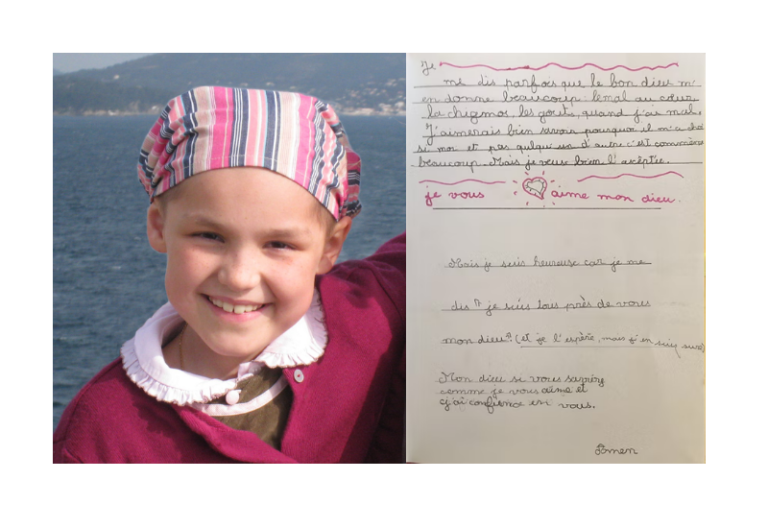 Je
me dis parfois que le bon dieu m'
en donne beaucoup: le mal au cœur
la chymios, les gouts, quand j'ai mal,
J'aimerais bien savoir pourquoi il m'a
si moi et pas quelqu'un d'autre c'est
beaucoup. Mais je veux bien l'
je vous aime mon dieu.
Mais je suis heureuse car je me
dis " je suis tous près de vous
mon dieu" (et je l'espère, mais j'en suis sure)
Mon dieu si vous saviez
comme je vous aime et
j'ai confience en vous.
Amen